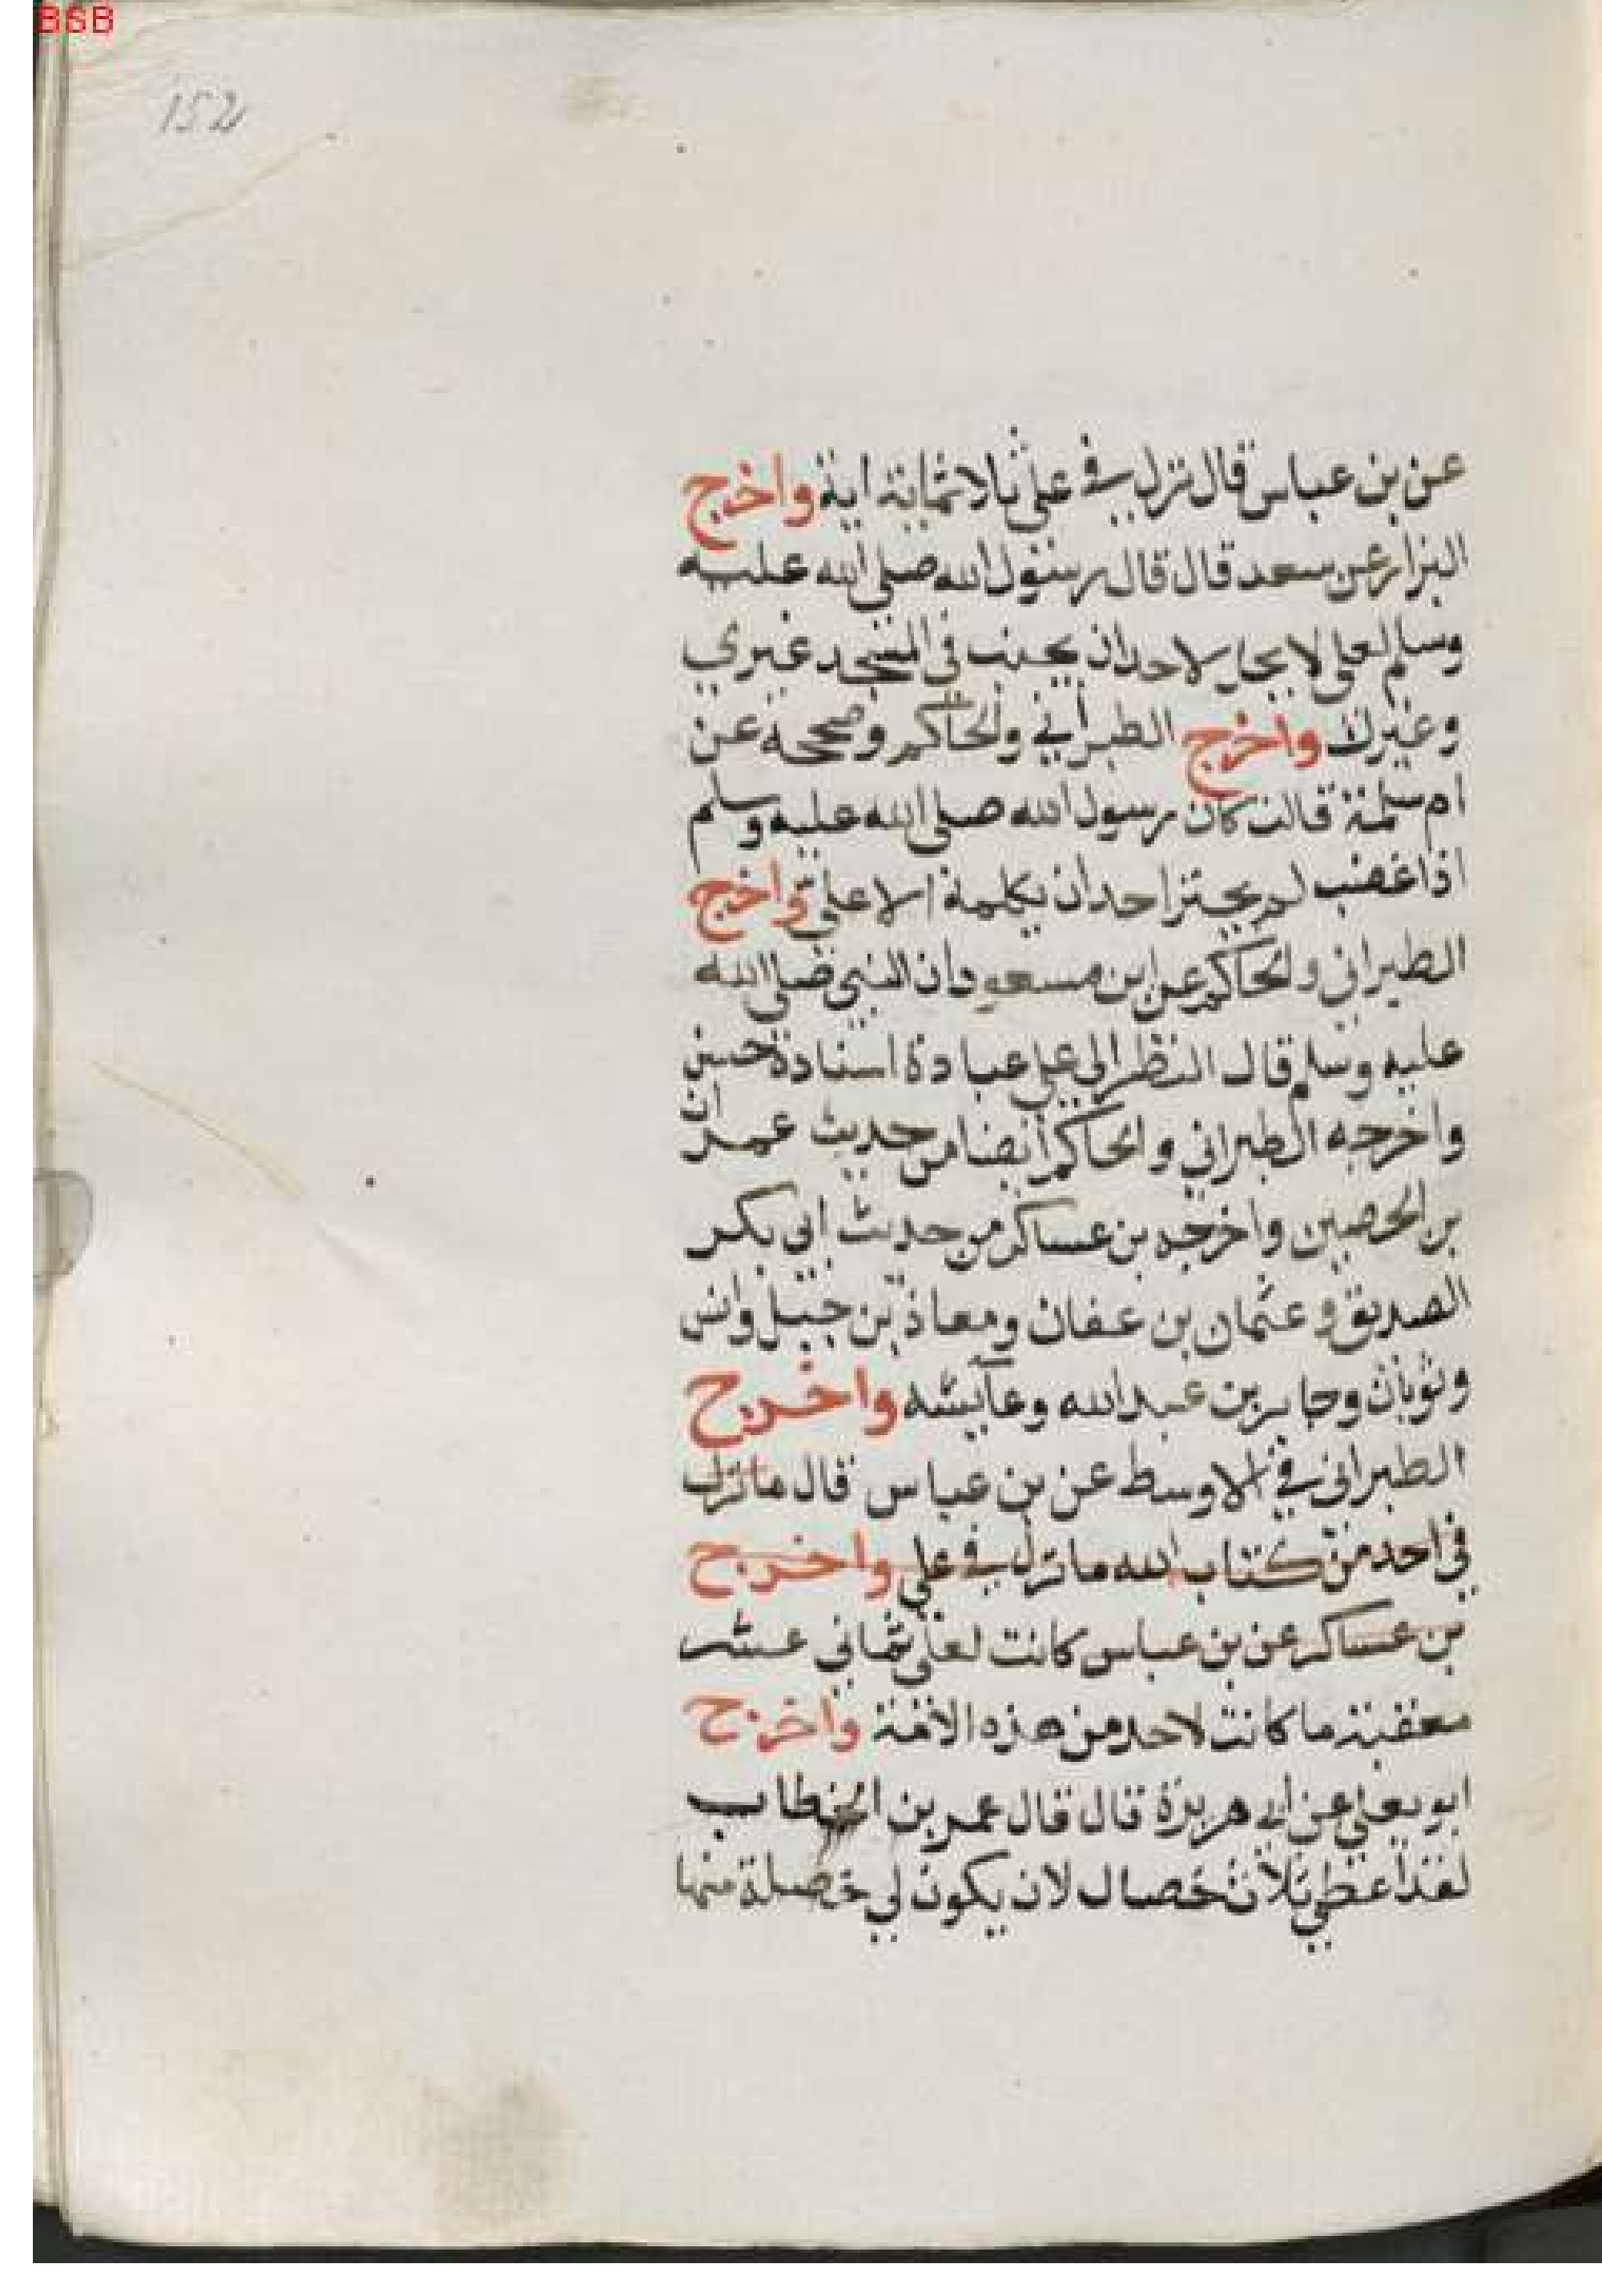 BSB
152
عن بن عباس قال نزل في علي ثلاثماية اية واخرج
البزار عن سعد قال قال رسول الله صلى الله عليه
وسلم لعلي لا يحل لاحد ان يجنب في المسجد غيري
وغيرك واخرج الطبراني والحاكم وصححه عن
ام سلمة قالت كان رسول الله صلى الله عليه وسلم
اذا غضب لم يجتز احد ان يكلمه الا علي واخرج
الطبراني والحاكم عن ابن مسعود ان النبي صلى الله
عليه وسلم قال النظر الي علي عبادة اسناده حسن
واخرجه الطبراني والحاكم ايضا من حديث عمران
بن الحصين واخرجه بن عساكر من حديث ابي بكر
الصديق و عثمان بن عفان ومعاذ بن جبل وانس
وثوبان وجابر بن عبد الله وعايشه واخرج
الطبراني في الاوسط عن بن عباس قال ما نزل
في احد من كتاب الله ما نزل في علي واخرج
بن عساكر عن بن عباس كانت لعلي ثماني عشر
معقبة ما كانت لاحد من هذه الامة واخرج
ابو يعلي عن ابي هريرة قال قال عمر بن الخطاب
لقد اعطي ثلاث خصال لان يكون لي خصلة منها